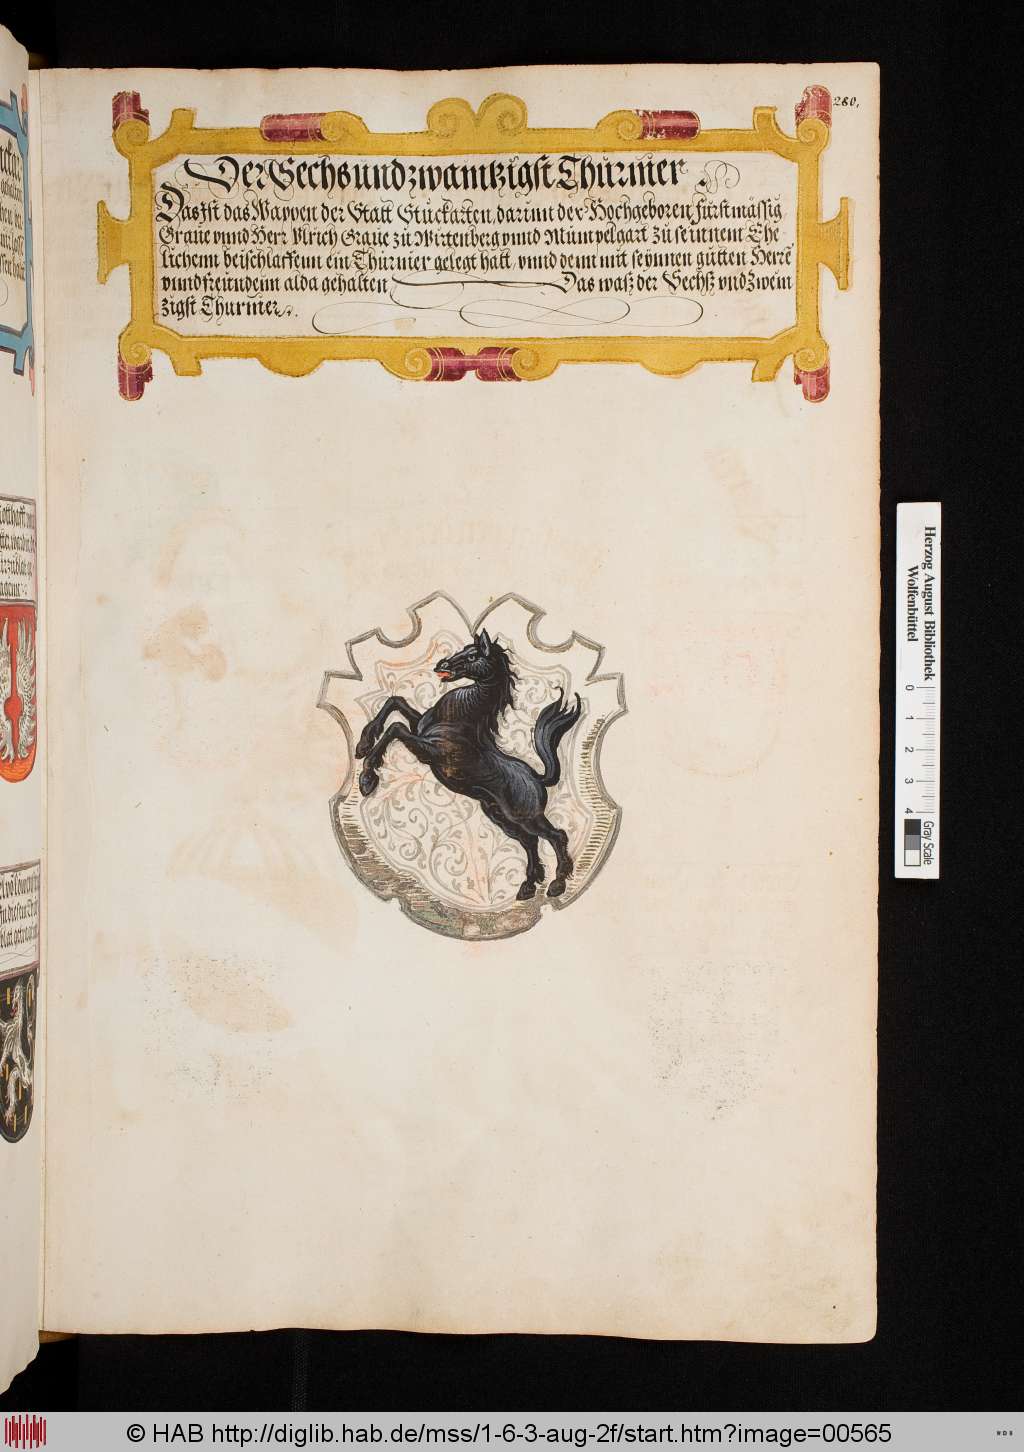 280,
Der Sechs und zwamtzigst Thurnier
Das Ist das Wappen der Statt Stuckarten, darinn der Hochgeboren furstmässig
Graue vnnd Herr Vlrich Graue zu Wirtenberg vnnd Mumpelgart zu seinnem Ehe-
lichenn beischlaffenn ein Thurnier gelegt hatt, vnnd denn mit seÿnnen gutten Herrẽ
vnnd freundenn alda gehalten Das wasz der Sechsz vnd Zwein
zigst Thurnier.
Herzog August Bibliothek
Wolfenbüttel
0 1 2 3 4
Gray Scale
© HAB http://diglib.hab.de/mss/1-6-3-aug-2f/start.htm?image=00565